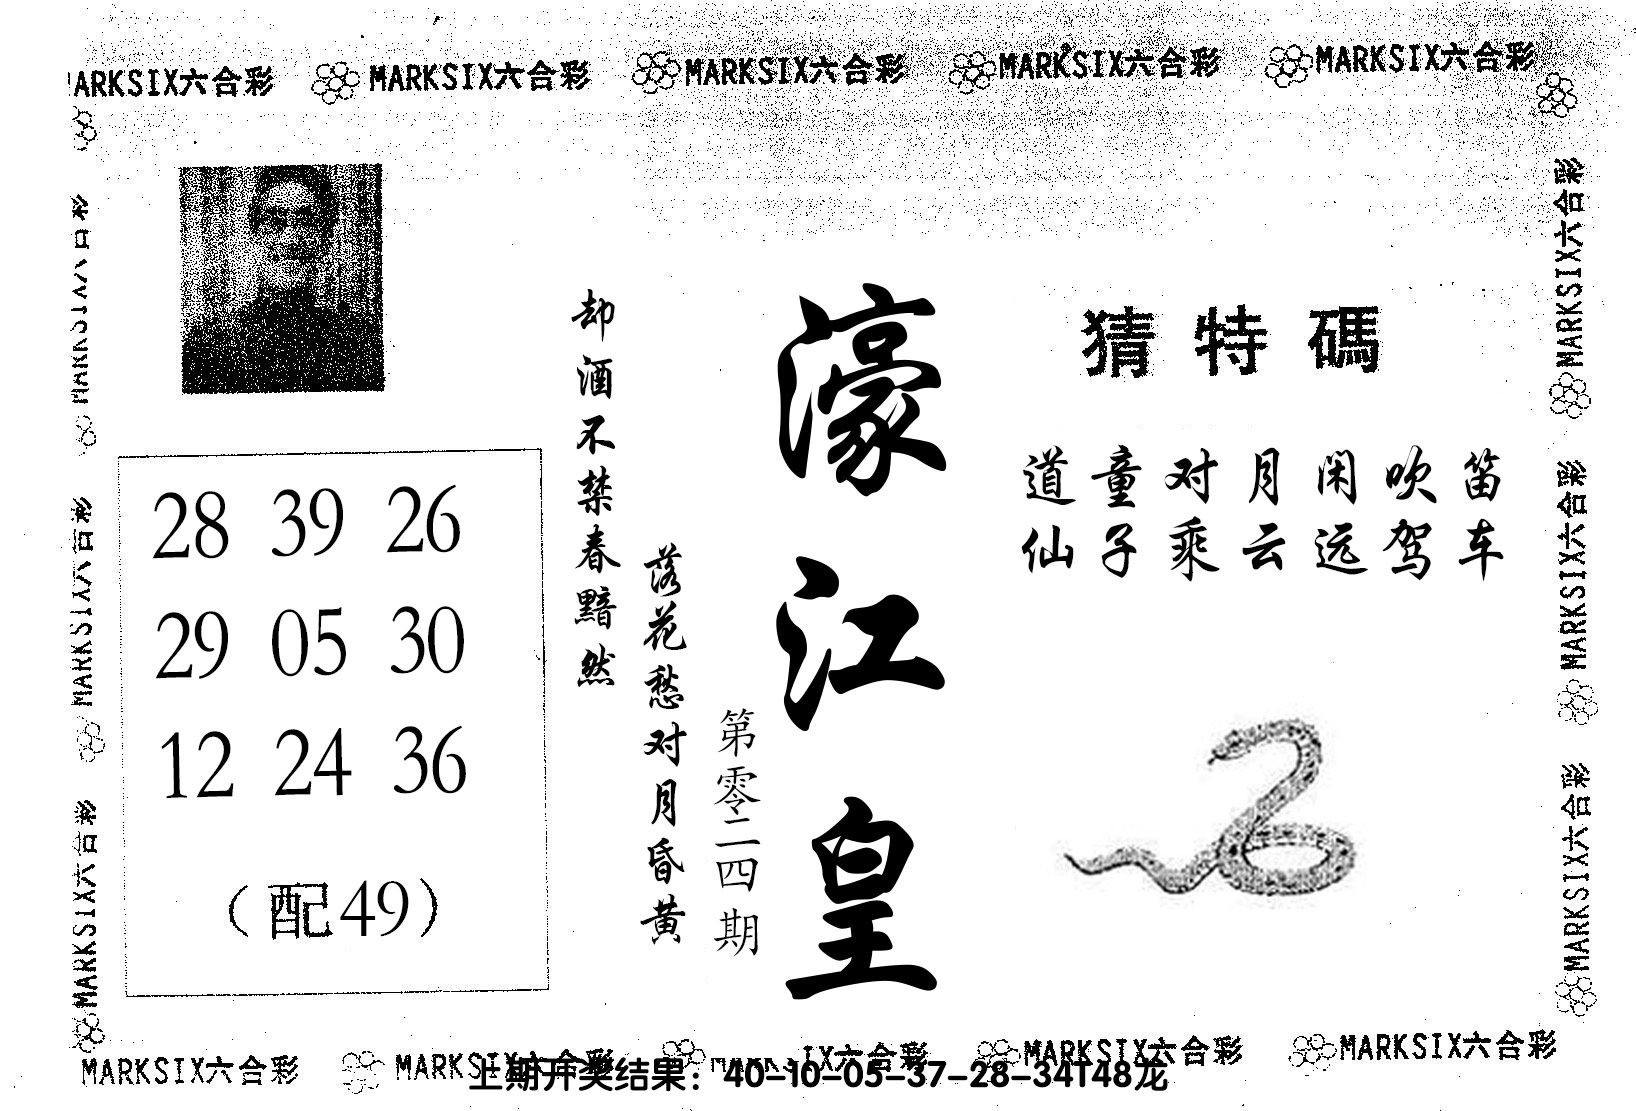 MARKSIX六合彩 MARKSIX六合彩 MARKSIX六合彩 MARKSIX六合彩 MARKSIX六合彩
MARKSIX六合彩
MARKSIX六合彩
MARKSIX六合彩
28 39 26
29 05 30
12 24 36
（配49）
却酒不禁春黯然
落花愁对月昏黄
第零二四期
濠江皇
猜特碼
道童对月闲吹笛
仙子乘云远驾车
MARKSIX六合彩
MARKSIX六合彩
MARKSIX六合彩
MARKSIX六合彩 MARKSIX六合彩 MARKSIX六合彩 MARKSIX六合彩 MARKSIX六合彩
上期开奖结果：40-10-05-37-28-34T48龙